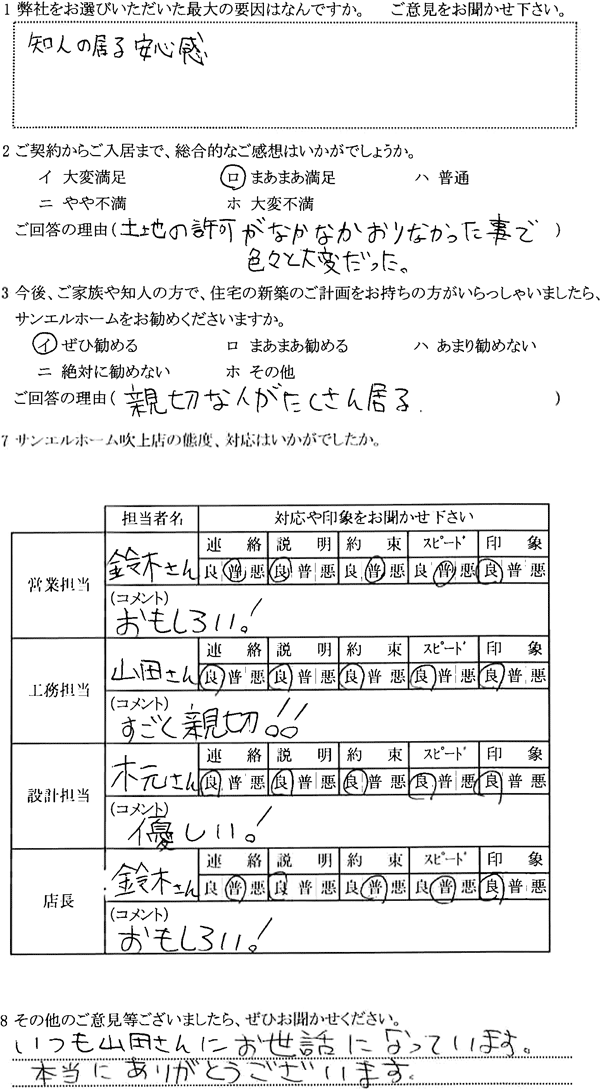 1 弊社をお選びいただいた最大の要因はなんですか。 ご意見をお聞かせ下さい。
知人の居る安心感
2 ご契約からご入居まで、総合的なご感想はいかがでしょうか。
イ 大変満足 ロ まあまあ満足 ハ 普通
ニ やや不満 ホ 大変不満
ご回答の理由(土地の許可がなかなかおりなかった事で )
色々と大変だった。
3 今後、ご家族や知人の方で、住宅の新築のご計画をお持ちの方がいらっしゃいましたら、
サンエルホームをお勧めくださいますか。
イ ぜひ勧める ロ まあまあ勧める ハ あまり勧めない
ニ 絶対に勧めない ホ その他
ご回答の理由( 親切な人がたくさん居る. )
7 サンエルホーム吹上店の態度、対応はいかがでしたか。
担当者名 対応や印象をお聞かせ下さい
営業担当 鈴木さん 連絡 説明 約束 スピード 印象
良 普 悪 良 普 悪 良 普 悪 良 普 悪 良 普 悪
(コメント)
おもしろい!
工務担当 山田さん 連絡 説明 約束 スピード 印象
良 普 悪 良 普 悪 良 普 悪 良 普 悪 良 普 悪
(コメント)
すごく親切!!
設計担当 木元さん 連絡 説明 約束 スピード 印象
良 普 悪 良 普 悪 良 普 悪 良 普 悪 良 普 悪
(コメント)
優しい!
店長 鈴木さん 連絡 説明 約束 スピード 印象
良 普 悪 良 普 悪 良 普 悪 良 普 悪 良 普 悪
(コメント)
おもしろい!
8 その他のご意見等ございましたら、ぜひお聞かせください。
いつも山田さんにお世話になっています。
本当にありがとうございます.